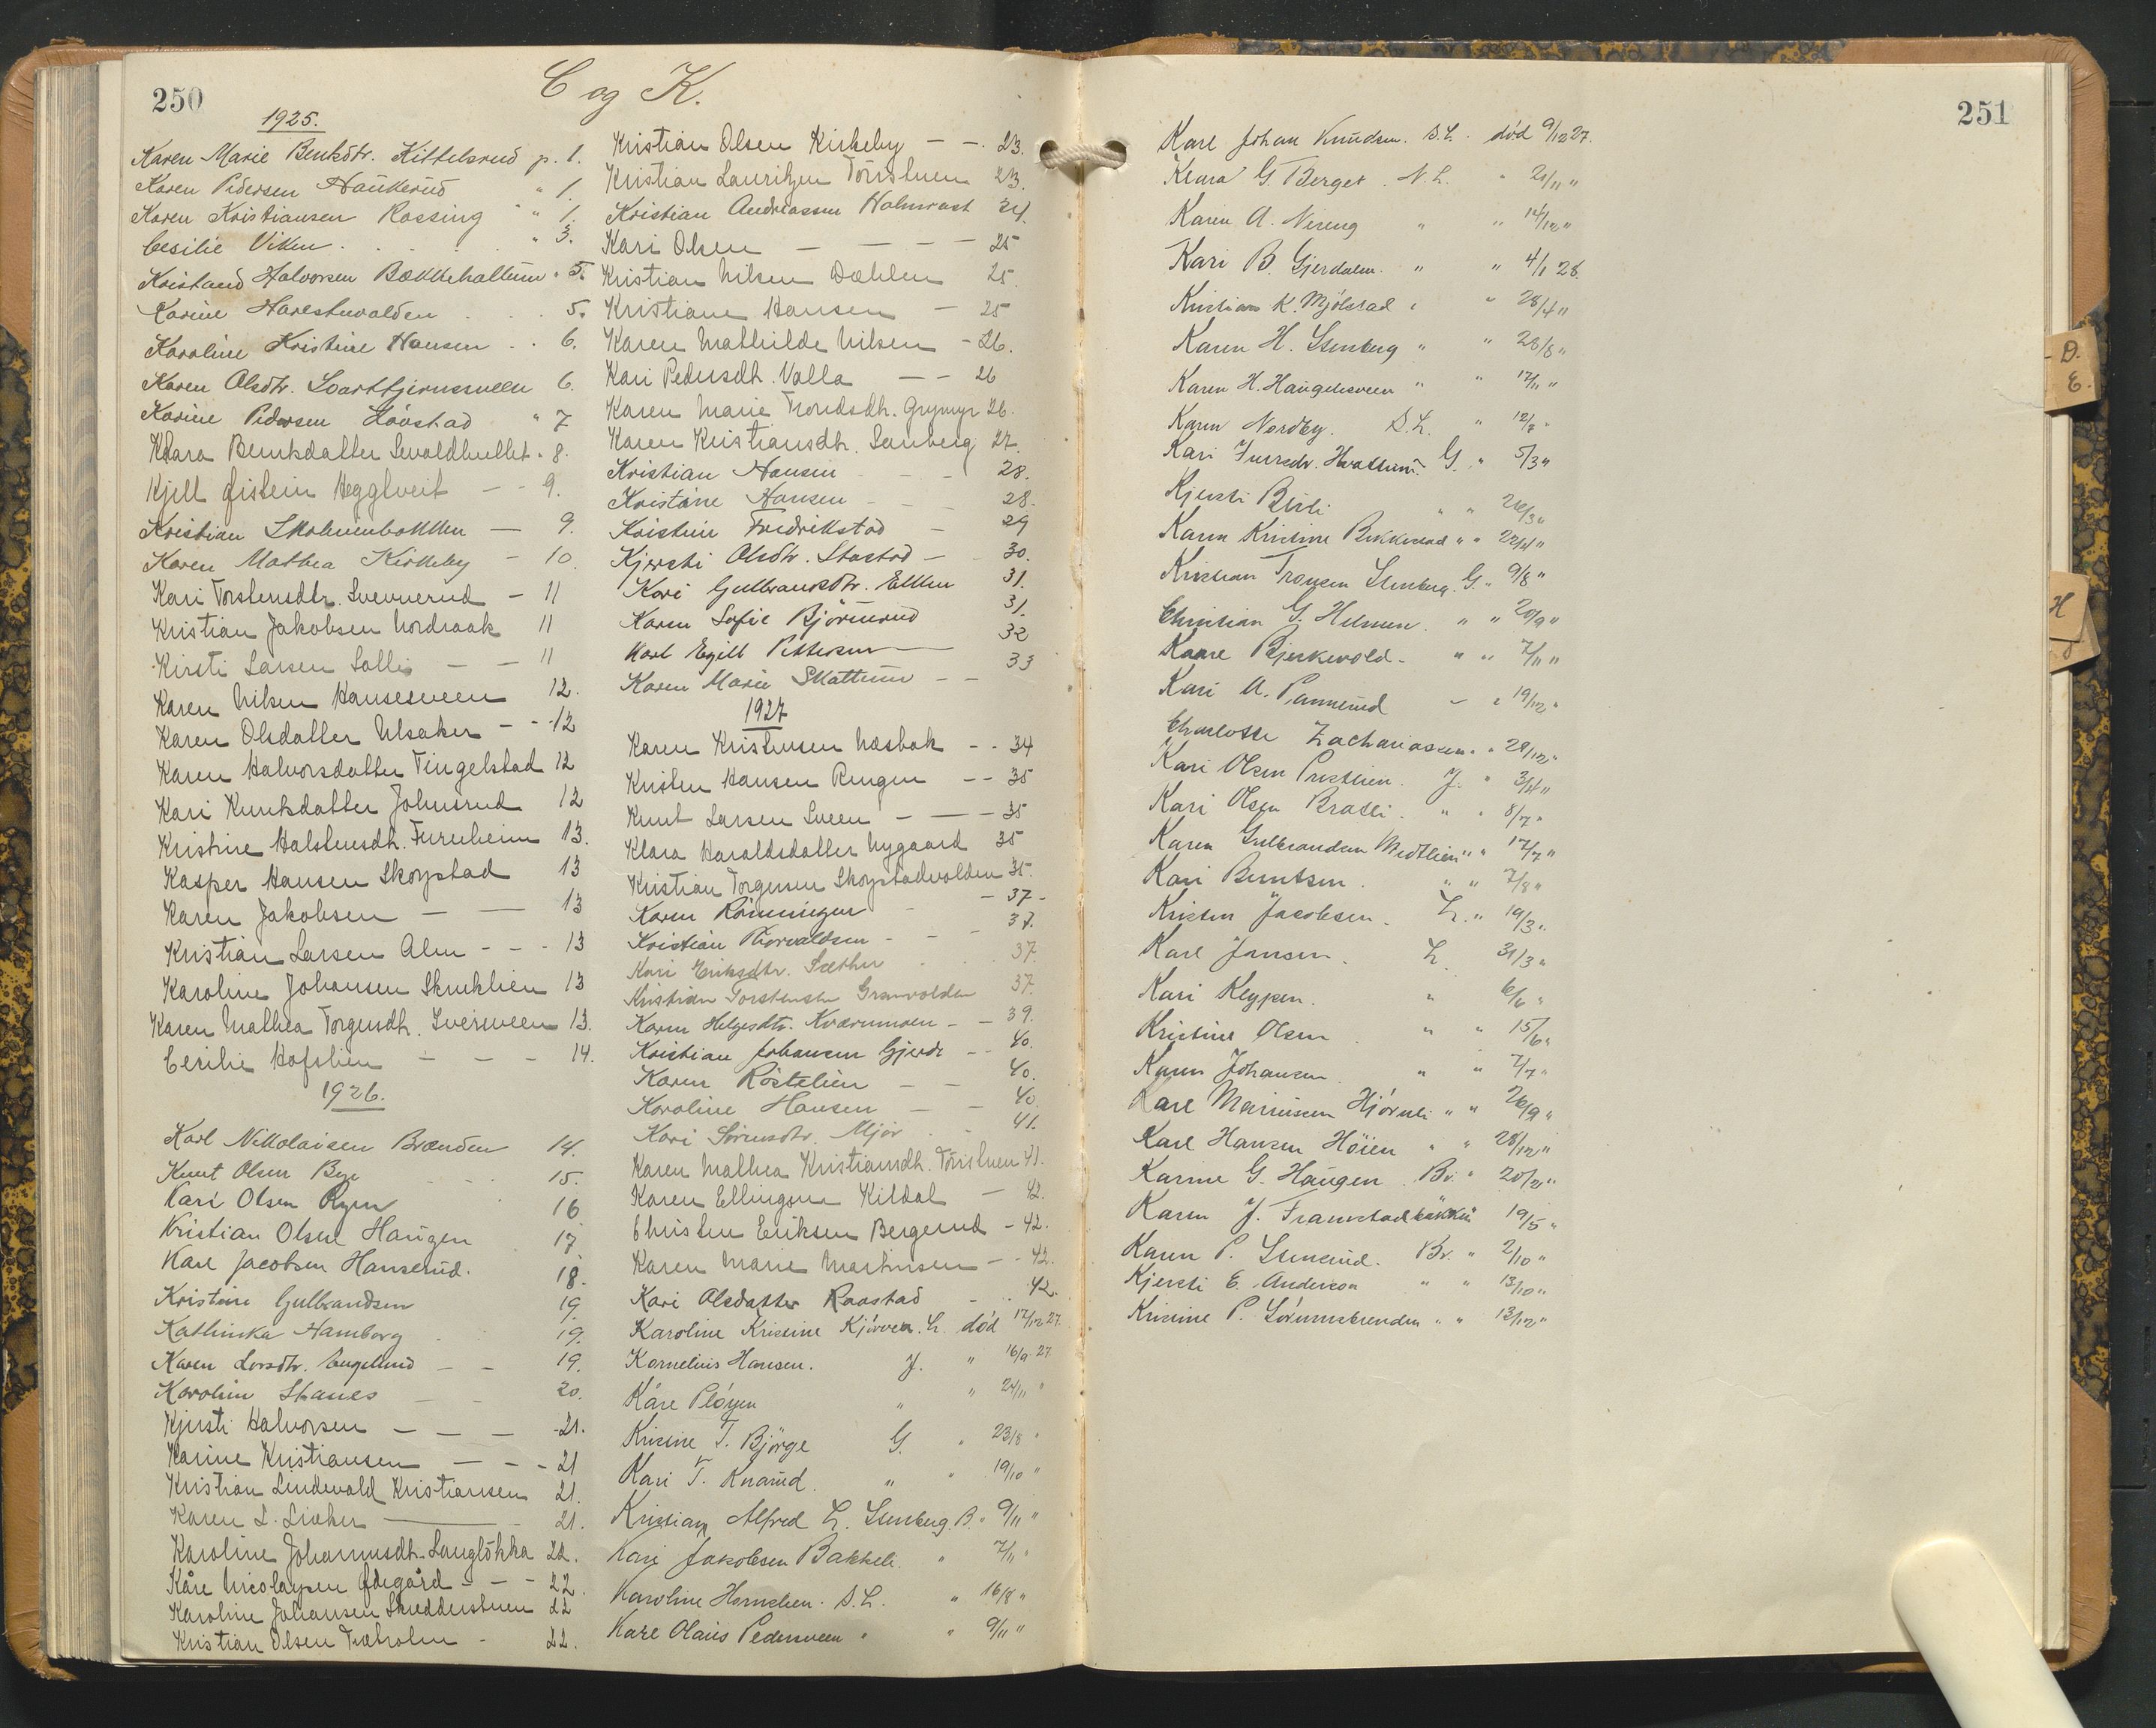 250
C og K.
1925.
Karen Marie Berntsdtr. Kittelsrud p. 1.
Karen Pedersen Haukerud " 1.
Karen Kristiansen Rossing " " 1.
Cesilie Viken . . . . " 3.
Kristand Halvorsen Bækkehallum " 5.
Karine Harestuvolden . . . 5.
Karoline Kristine Hansen . . 6.
Karen Olsdtr. Svarttjernsveen 6.
Karine Pedersen Hövstad " 7
Klara Berntsdatter " 8.
Kjell Øistein Hegglveit - - 9.
Kristian Skolmenbakken - 9.
Karen Mathea Kirkeby - 10.
Kari Torstensdtr. Svennerud - 11
Kristian Jakobsen Nordraak 11
Kirsti Larsen Solli - - 11
Karen Nilsen Hansesveen 12.
Karen Olsdatter Ulsaker - - 12
Karen Halvorsdatter Tingelstad 12
Kari Knutsdatter Johnsrud 12
Kristine Halstensdtr. Fureheim 13.
Kasper Hansen Skoystad 13
Karen Jakobsen - - 13
Kristian Larsen Alm - - - 13
Karoline Johansen Skruklien 13
Karen Mathea Torgersdtr. Sversveen 13.
Cesilie Hofslien - - - 14.
1926.
Karl Nikolaisen Brænden 14.
Knut Olsen Bye 15.
Kari Olsen Rym 16
Kristian Olsen Haugen 17
Karl Jacobsen Hanserud. 18.
Kristine Gulbrandsen 19.
Kathinka Hamborg 19.
Karen Larsdtr. Engelund - - 19.
Karoline Skanes - - 20.
Kjersti Halvorsen - - - 21.
Karine Kristiansen - - - 21
Kristian Lindevald Kristiansen 21.
Karen L. Lieker - 21.
Karoline Johannesdtr. Langlökka 22.
Kåre Nicolaysen Ødegård - - - 22.
Karoline Johansen Skredderstuen 22
Kristian Olsen Træholm - 22.
Kristian Olsen Kirkeby - - 23.
Kristian Lauritzen Törisluen 23.
Kristian Andreassen Halmrast 24.
Kari Olsen - - - - 25
Kristian Nilsen Dæhlen 25.
Kristiane Hansen - 25
Karen Mathilde Nilsen - 26.
Kari Pedersdtr. Valla - - 26
Karen Marie Trondsdtr. Grymyr 26.
Karen Kristiansdtr. Sanberg 27.
Kristian Hansen - - 28.
Kristine Hansen - - 28.
Kristine Fredrikstad - 29
Kjersti Olsdtr. Stastad - 30.
Kari Gulbrandsdtr. Elken 31.
Karen Sofie Björnerud 31.
Karl Egill Pettersen - 32
Karen Marie Skattum - - 33
1927
Karen Kristensen Næsbak - - 34
Kristen Hansen Ringen - - 35
Knut Larsen Sveen - - - 35
Klara Haraldsdatter Nygaard 35
Kristian Torgersen Skoystadvolden 35.
Karen Rönningen - - 37-
Kristian Thorvaldsen - - - 37.
Kari Eriksdtr. Sæther . . . 37.
Kristian Torstensen Granvolden 37.
Karen Helgesdtr. Kværnmoen - - 39.
Kristian Johansen Gjerde - - 40.
Karen Röstelien - - 40.
Karoline Hansen - - 40.
Kari Sörensdtr. Mjör . . 41.
Karen Mathea Kristiansdtr. Törisluen 41.
Karen Ellingsen Kildal - 42.
Christen Eriksen Bergerud - 42.
Karen Marie Martinsen - - 42.
Kari Olsdatter Raastad - . 42.
Karoline Kristine Kjörven. L. död 17/12 27.
Kornelius Hansen. J. " 16/9 27
Kåre Plöyen " " 24/11 "
Kristine T. Björge G. " 23/8 "
Kari T. Knarud. " " 19/10 "
Kristian Alfred L. Stenberg. B. " 9/11 "
Kari Jakobsen Bakkeli. " 7/11 "
Karoline Hornslien. S.L. " 16/8 "
Karl Olaus Pedersveen " " 9/11 "
251
Karl Johan Knudsen. S.L. död 9/12 27.
Klara G. Berget. N.L. " 21/11 "
Karen A. Nereng " " 14/12 "
Kari B. Gjerdalen. " " 4/1 28.
Kristian K. Mjölstad " " 28/4 "
Karen H. Stenberg " " 28/8 "
Karen H. Haugalesveen " " 17/11 "
Karen Nordby. S.L. " 12/7 "
Kari Iversdr. Hvattum G. " 5/3 "
Kjersti Bleili " " 26/3 "
Karen Kristine Bekkestad " " 22/4 "
Kristian Tronsen Stenberg. G. " 9/8 "
Christian G. Helmen. " " 20/9 "
Kaare Bjerkevold - " " 7/11 "
Kari A. Pannerud " " 19/12 "
Charlotte Zachariassen. " 28/12 "
Kari Olsen Prestlien. J. " 3/4 "
Kari Olsen Bratli. " " 8/7 "
Karen Gulbrandsen Medtlien " " 17/7 "
Kari Berntsen. " " 7/8 "
Kristen Jacobsen - L. " 19/3 "
Karl Jansen. L. 31/3 "
Kari Klyppen. " 6/6 "
Kristine Olsen " " 15/6 "
Karen Johansen " " 7/7 "
Karl Mariussen Hjörneli " " 26/9 "
Karl Hansen Höien " " 28/12 "
Karine G. Haugen Br. " 20/2 "
Karen J. Framstadbakken 19/5 "
Karen P. Stenerud. Br. " 2/10 "
Kjersti E. Anderson " " 13/10 "
Kristine P. Sörumsbrenden " " 13/12 "
D.
E.
H